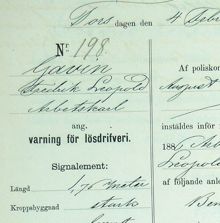 Tors dagen den 4 Febr
Nr 198.
Gavin
Fredrik Leopold
Arbetskarl
ang.
varning för lösdrifveri.
Signalement:
Längd 1,76 meter
Kroppsbyggnad stark
Af poliskon
August
inställdes inför
188 Arb
Leopold
af följande anle